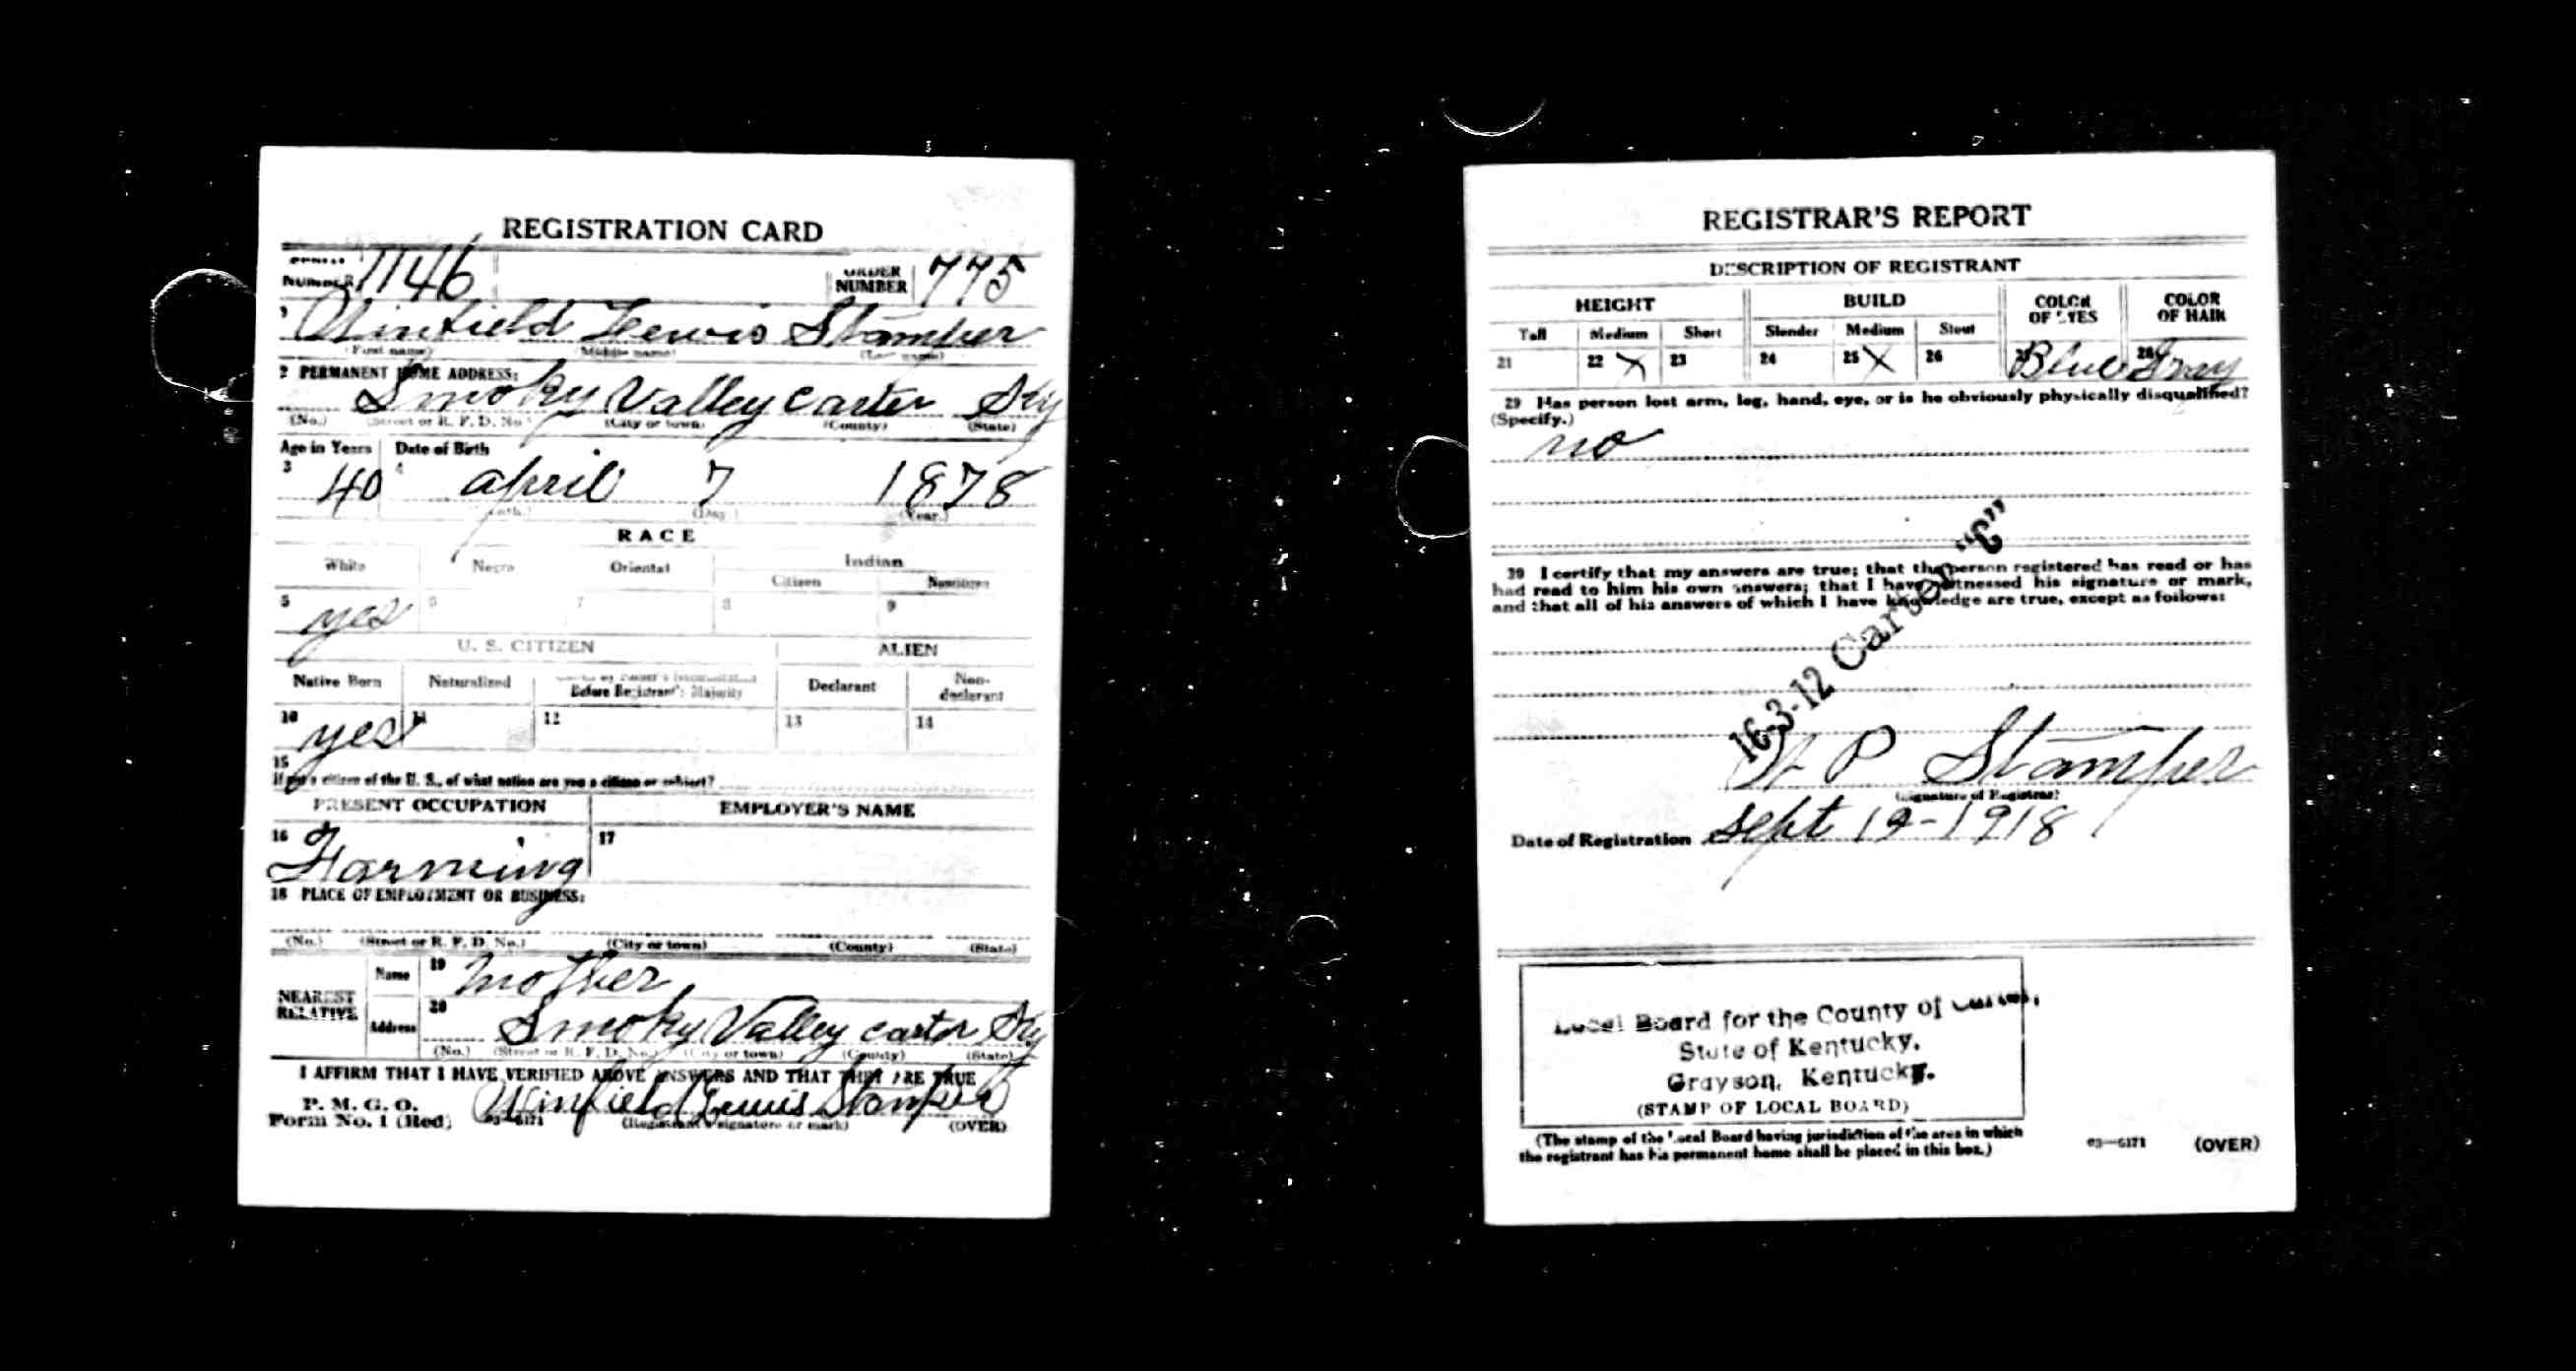 REGISTRATION CARD
NUMBER 1146 ORDER NUMBER 775
1 Winfield Lewis Stamper
(First name) (Middle name) (Last name)
2 PERMANENT HOME ADDRESS:
Smoky Valley Carter Ky
(No.) (Street or R. F. D. No.) (City or town) (County) (State)
Age in Years Date of Birth
3 40 4 april 7 1878
(Month.) (Day.) (Year.)
RACE
White Negro Oriental Indian
Citizen Noncitizen
5 yes 6 7 8 9
U. S. CITIZEN ALIEN
Native Born Naturalized Before Registrant's Majority Declarant Non-declarant
10 yes 11 12 13 14
15
If not a citizen of the U. S., of what nation are you a citizen or subject?
PRESENT OCCUPATION EMPLOYER'S NAME
16 Farming 17
18 PLACE OF EMPLOYMENT OR BUSINESS:
(No.) (Street or R. F. D. No.) (City or town) (County) (State)
NEAREST RELATIVE
Name 19 Mother
Address 20 Smoky Valley Carter Ky
(No.) (Street or R. F. D. No.) (City or town) (County) (State)
I AFFIRM THAT I HAVE VERIFIED ABOVE ANSWERS AND THAT THEY ARE TRUE
P. M. G. O.
Form No. 1 (Red) 03—6171 Winfield Lewis Stamper
(Registrant's signature or mark) (OVER)
REGISTRAR'S REPORT
DESCRIPTION OF REGISTRANT
HEIGHT BUILD COLOR OF EYES COLOR OF HAIR
Tall Medium Short Slender Medium Stout
21 22 X 23 24 25 X 26 27 Blue 28 Gray
29 Has person lost arm, leg, hand, eye, or is he obviously physically disqualified?
(Specify.)
no
30 I certify that my answers are true; that the person registered has read or has
had read to him his own answers; that I have witnessed his signature or mark,
and that all of his answers of which I have knowledge are true, except as follows:
16-3-12 Carter "C"
P Stamper
(Signature of Registrar)
Date of Registration Sept 12-1918
Local Board for the County of Carter,
State of Kentucky.
Grayson, Kentucky.
(STAMP OF LOCAL BOARD)
(The stamp of the Local Board having jurisdiction of the area in which
the registrant has his permanent home shall be placed in this box.)
03—6171 (OVER)